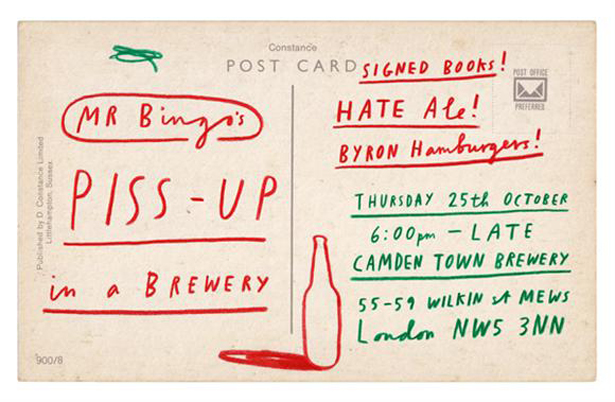 Constance
POST CARD
POST OFFICE
PREFERRED
MR Bingo's
PISS-UP
in a BREWERY
SIGNED BOOKS!
HATE Ale!
BYRON Hamburgers!
THURSDAY 25th OCTOBER
6:00pm - LATE
CAMDEN TOWN BREWERY
55-59 WILKIN st MEWS
London NW5 3NN
Published by D. Constance Limited
Littlehampton, Sussex
900/8